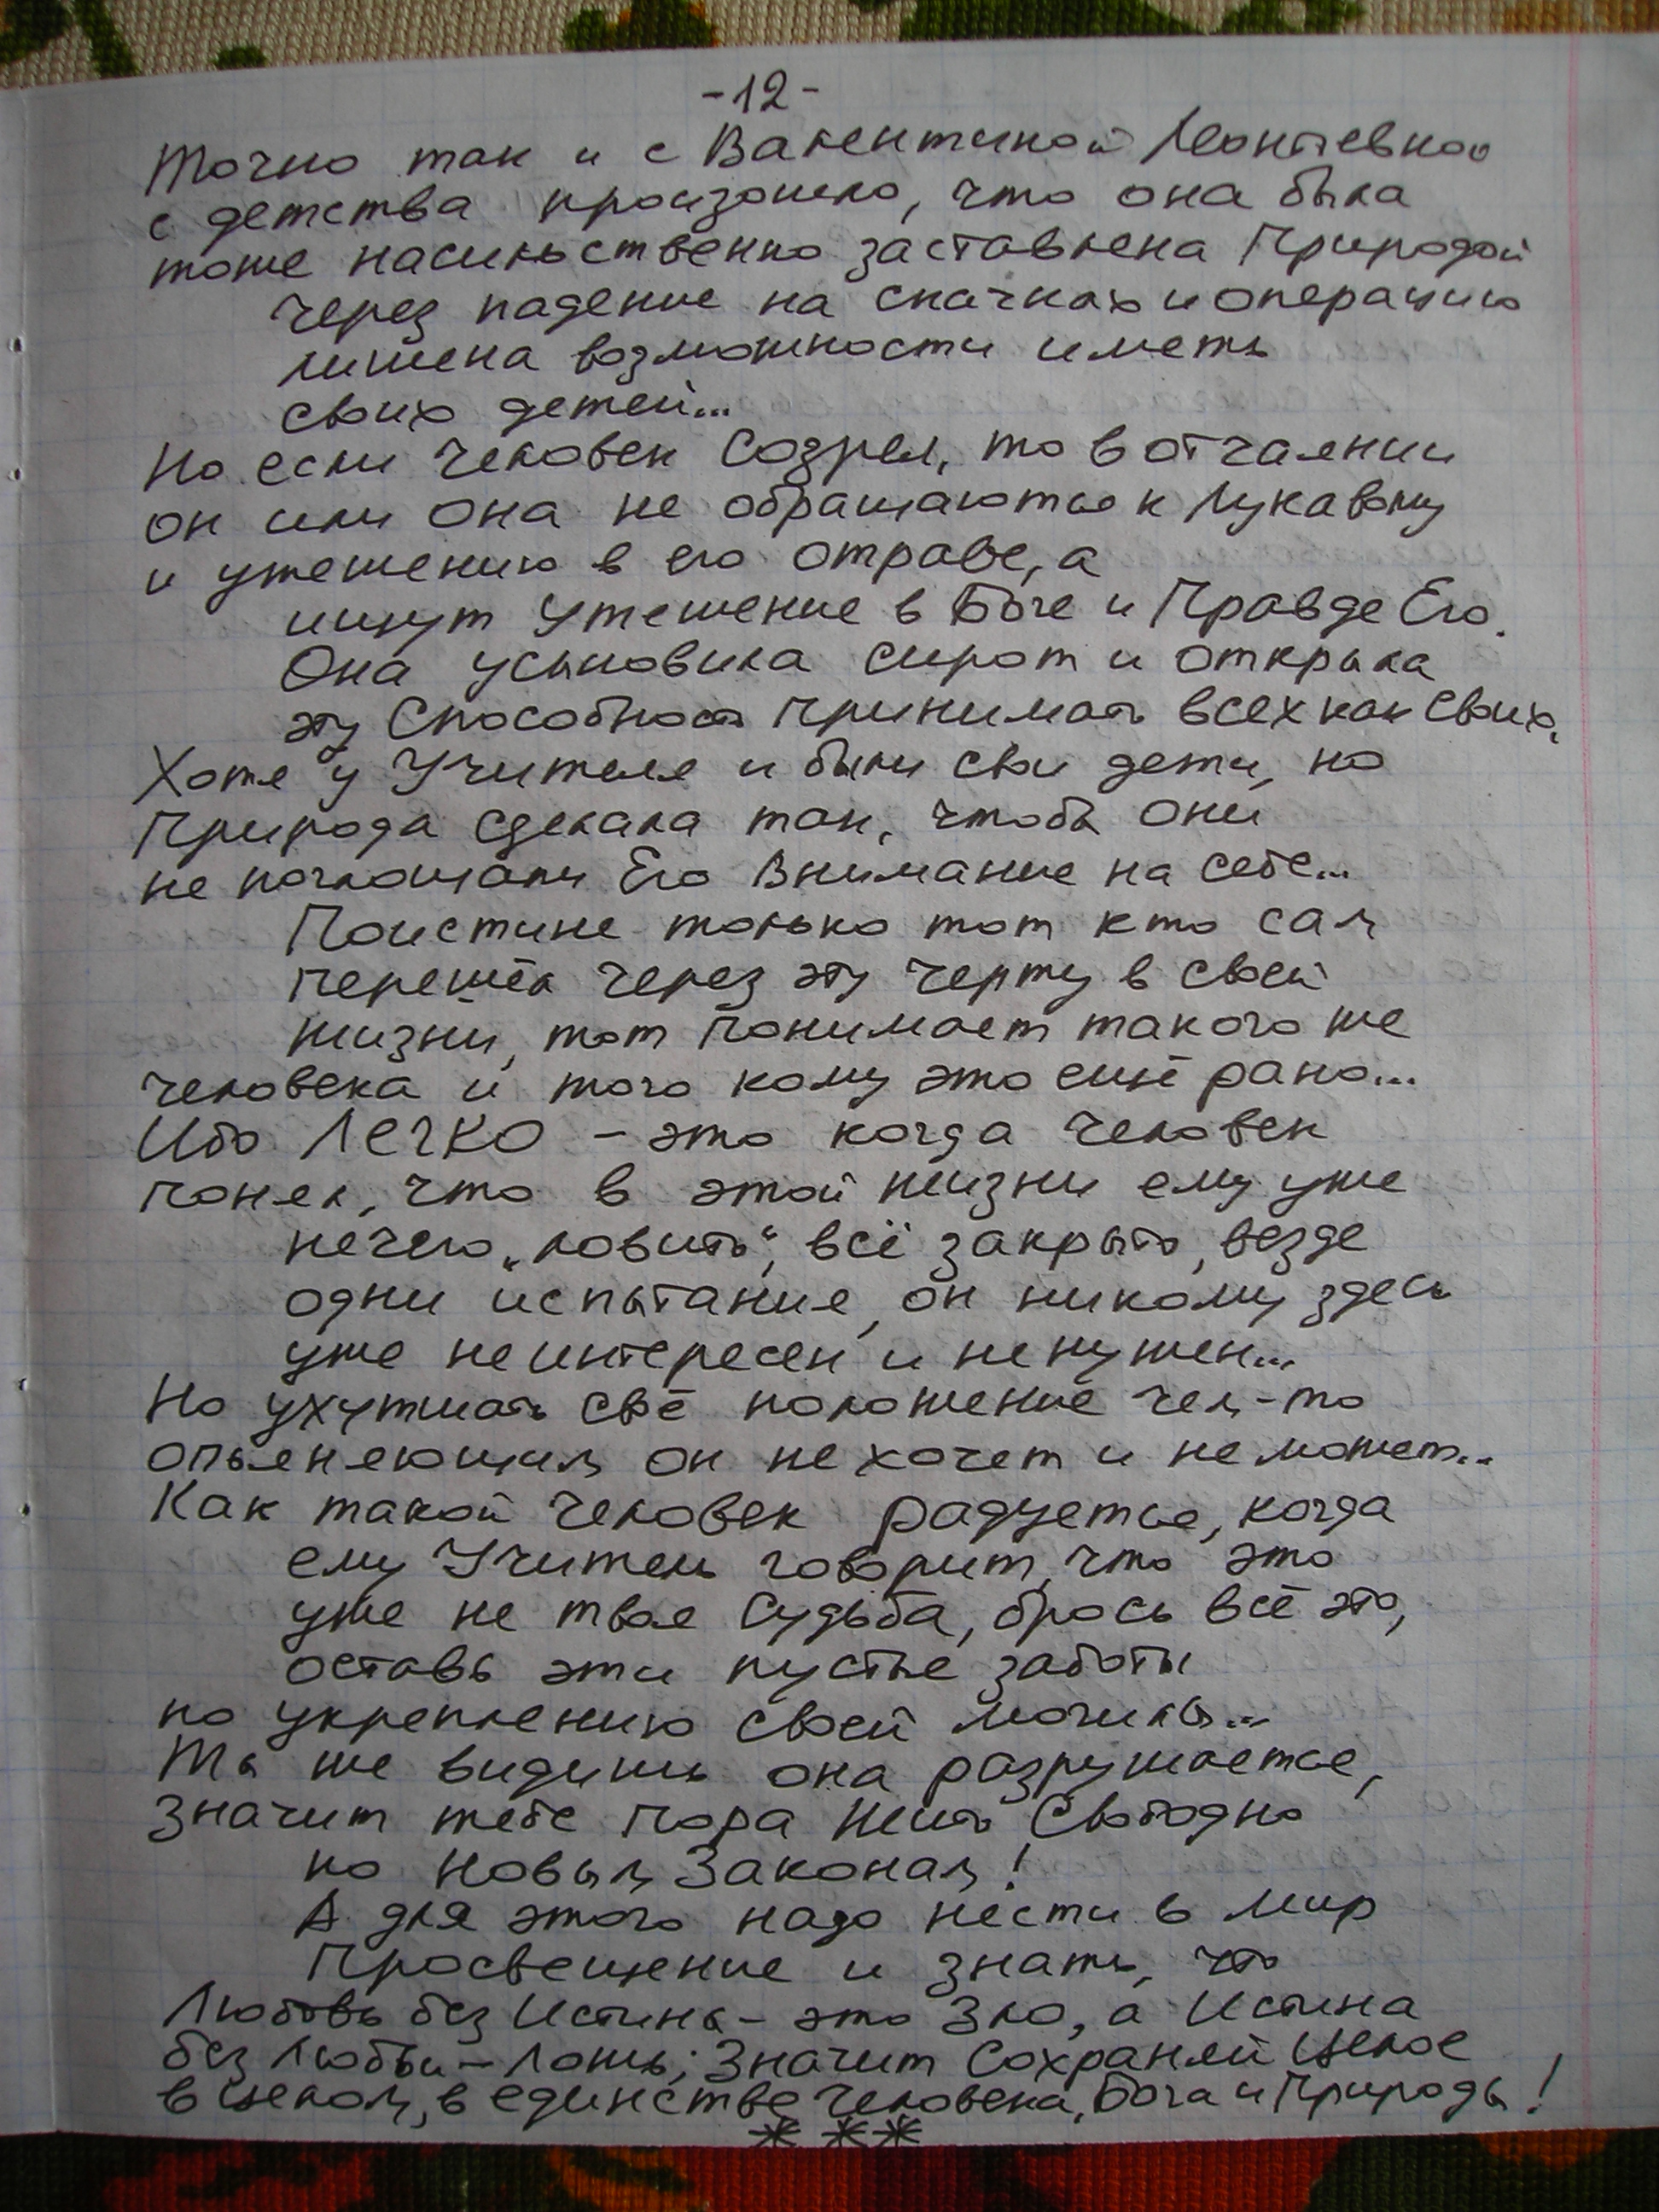 -12-
Точно так и с Валентиной Леонтьевной
с детства произошло, что она была
тоже насильственно заставлена Природой
через падение на скачках и операцию
лишена возможности иметь
своих детей...
Но если человек Созрел, то в отчаянии
он или она не обращаются к Лукавому
и утешению в его отраве, а
ищут Утешение в Боге и Правде Его.
Она усыновила сирот и открыла
эту Способность Принимать всех как Своих,
Хотя у Учителя и были свои дети, но
Природа сделала так, чтобы они
не поглощали Его Внимание на себе...
Поистине только тот кто сам
перешёл через эту черту в своей
жизни, тот Понимает такого же
человека и того кому это ещё рано...
Ибо Легко - это когда человек
понял, что в этой жизни ему уже
нечего „ловить“, всё закрыто, везде
одни испытания, он никому здесь
уже неинтересен и ненужен...
Но ухутшать своё положение чем-то
опьеняющим он не хочет и не может...
Как такой человек радуется, когда
ему Учитель говорит, что это
уже не твоя Судьба, брось всё это,
оставь эти пустые заботы
по укреплению своей могилы...
Ты же видишь она разрушается,
Значит тебе Пора Жить Свободно
по Новым Законам!
А для этого надо нести в мир
Просвещение и знать, что
Любовь без Истины - это Зло, а Истина
без Любви - Ложь; Значит Сохраняй Целое
в целом, в единстве Человека, Бога и Природы!
* * *